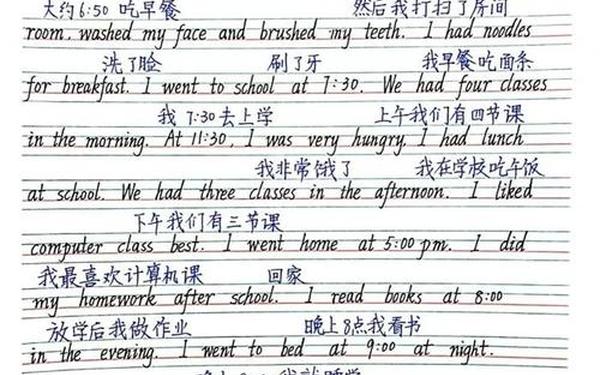 大约6:50 吃早餐 然后我打扫了房间
room, washed my face and brushed my teeth. I had noodles
洗了脸 刷了牙 我早餐吃面条
for breakfast. I went to school at 7:30. We had four classes
我7:30去上学 上午我们有四节课
in the morning. At 11:30, I was very hungry. I had lunch
我非常饿了 我在学校吃午饭
at school. We had three classes in the afternoon. I liked
下午我们有三节课
computer class best. I went home at 5:00 pm. I did
我最喜欢计算机课 回家
my homework after school. I read books at 8:00
放学后我做作业 晚上8点我看书
in the evening. I went to bed at 9:00 at night.